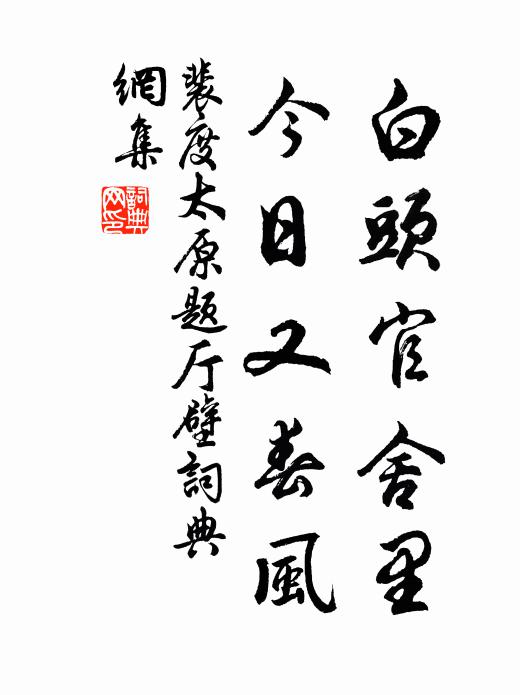 白頭官舍里
今日又春風
裴度太原題厅壁詞典
網集
詞典網印